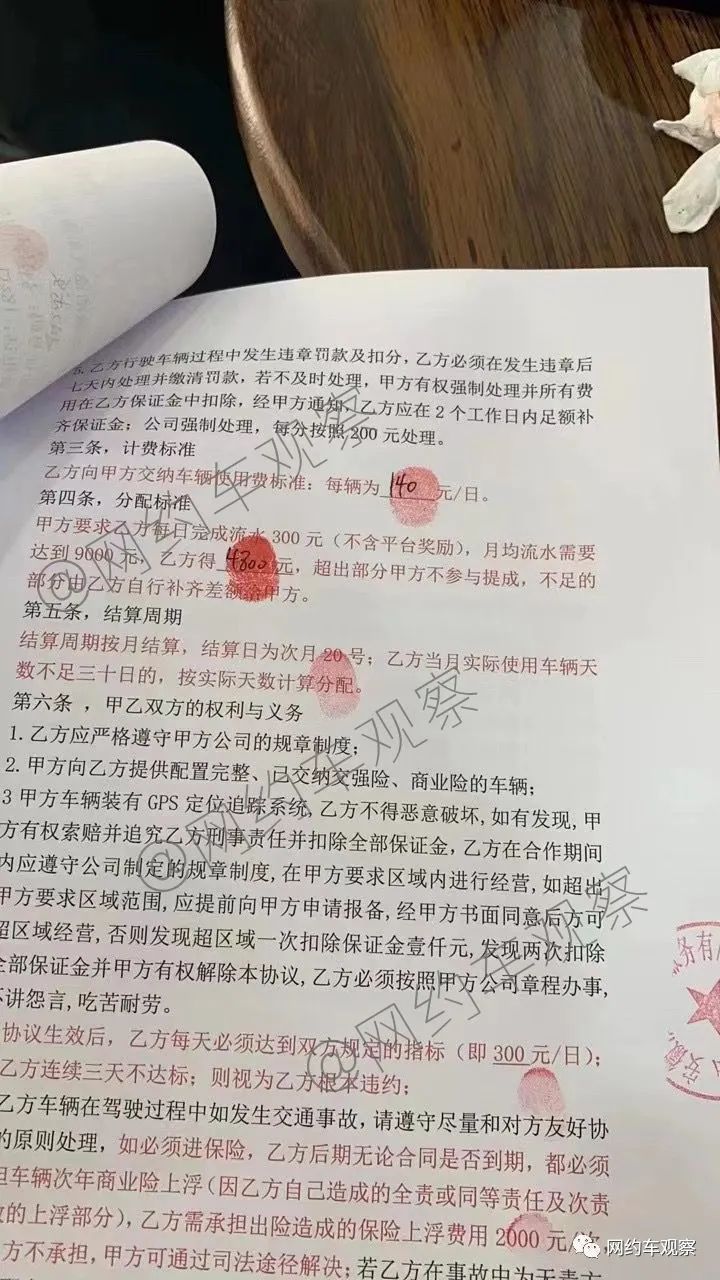 5.乙方行驶车辆过程中发生违章罚款及扣分，乙方必须在发生违章后
七天内处理并缴清罚款，若不及时处理，甲方有权强制处理并所有费
用在乙方保证金中扣除，经甲方通知，乙方应在2个工作日内足额补
齐保证金；公司强制处理，每分按照200元处理。
第三条，计费标准
乙方向甲方交纳车辆使用费标准：每辆为 140 元/日。
第四条，分配标准
甲方要求乙方每日完成流水300元（不含平台奖励），月均流水需要
达到9000元，乙方得 4800 元，超出部分甲方不参与提成，不足的
部分由乙方自行补齐差额给甲方。
第五条，结算周期
结算周期按月结算，结算日为次月20号；乙方当月实际使用车辆天
数不足三十日的，按实际天数计算分配。
第六条 ，甲乙双方的权利与义务
1.乙方应严格遵守甲方公司的规章制度；
2.甲方向乙方提供配置完整、已交纳交强险、商业险的车辆；
3 甲方车辆装有GPS定位追踪系统,乙方不得恶意破坏,如有发现,甲
方有权索赔并追究乙方刑事责任并扣除全部保证金,乙方在合作期间
内应遵守公司制定的规章制度,在甲方要求区域内进行经营,如超出
甲方要求区域范围,应提前向甲方申请报备,经甲方书面同意后方可
超区域经营,否则发现超区域一次扣除保证金壹仟元,发现两次扣除
全部保证金并甲方有权解除本协议,乙方必须按照甲方公司章程办事,
不讲怨言,吃苦耐劳。
协议生效后，乙方每天必须达到双方规定的指标（即300元/日）；
乙方连续三天不达标；则视为乙方根本违约；
乙方车辆在驾驶过程中如发生交通事故,请遵守尽量和对方友好协
的原则处理，如必须进保险，乙方后期无论合同是否到期，都必须
担车辆次年商业险上浮(因乙方自己造成的全责或同等责任及次责
的上浮部分),乙方需承担出险造成的保险上浮费用2000元/次,
方不承担,甲方可通过司法途径解决;若乙方在事故中为无责方
务有
安徽
@网约车观察
@网约车观察
@网约车观察
网约车观察